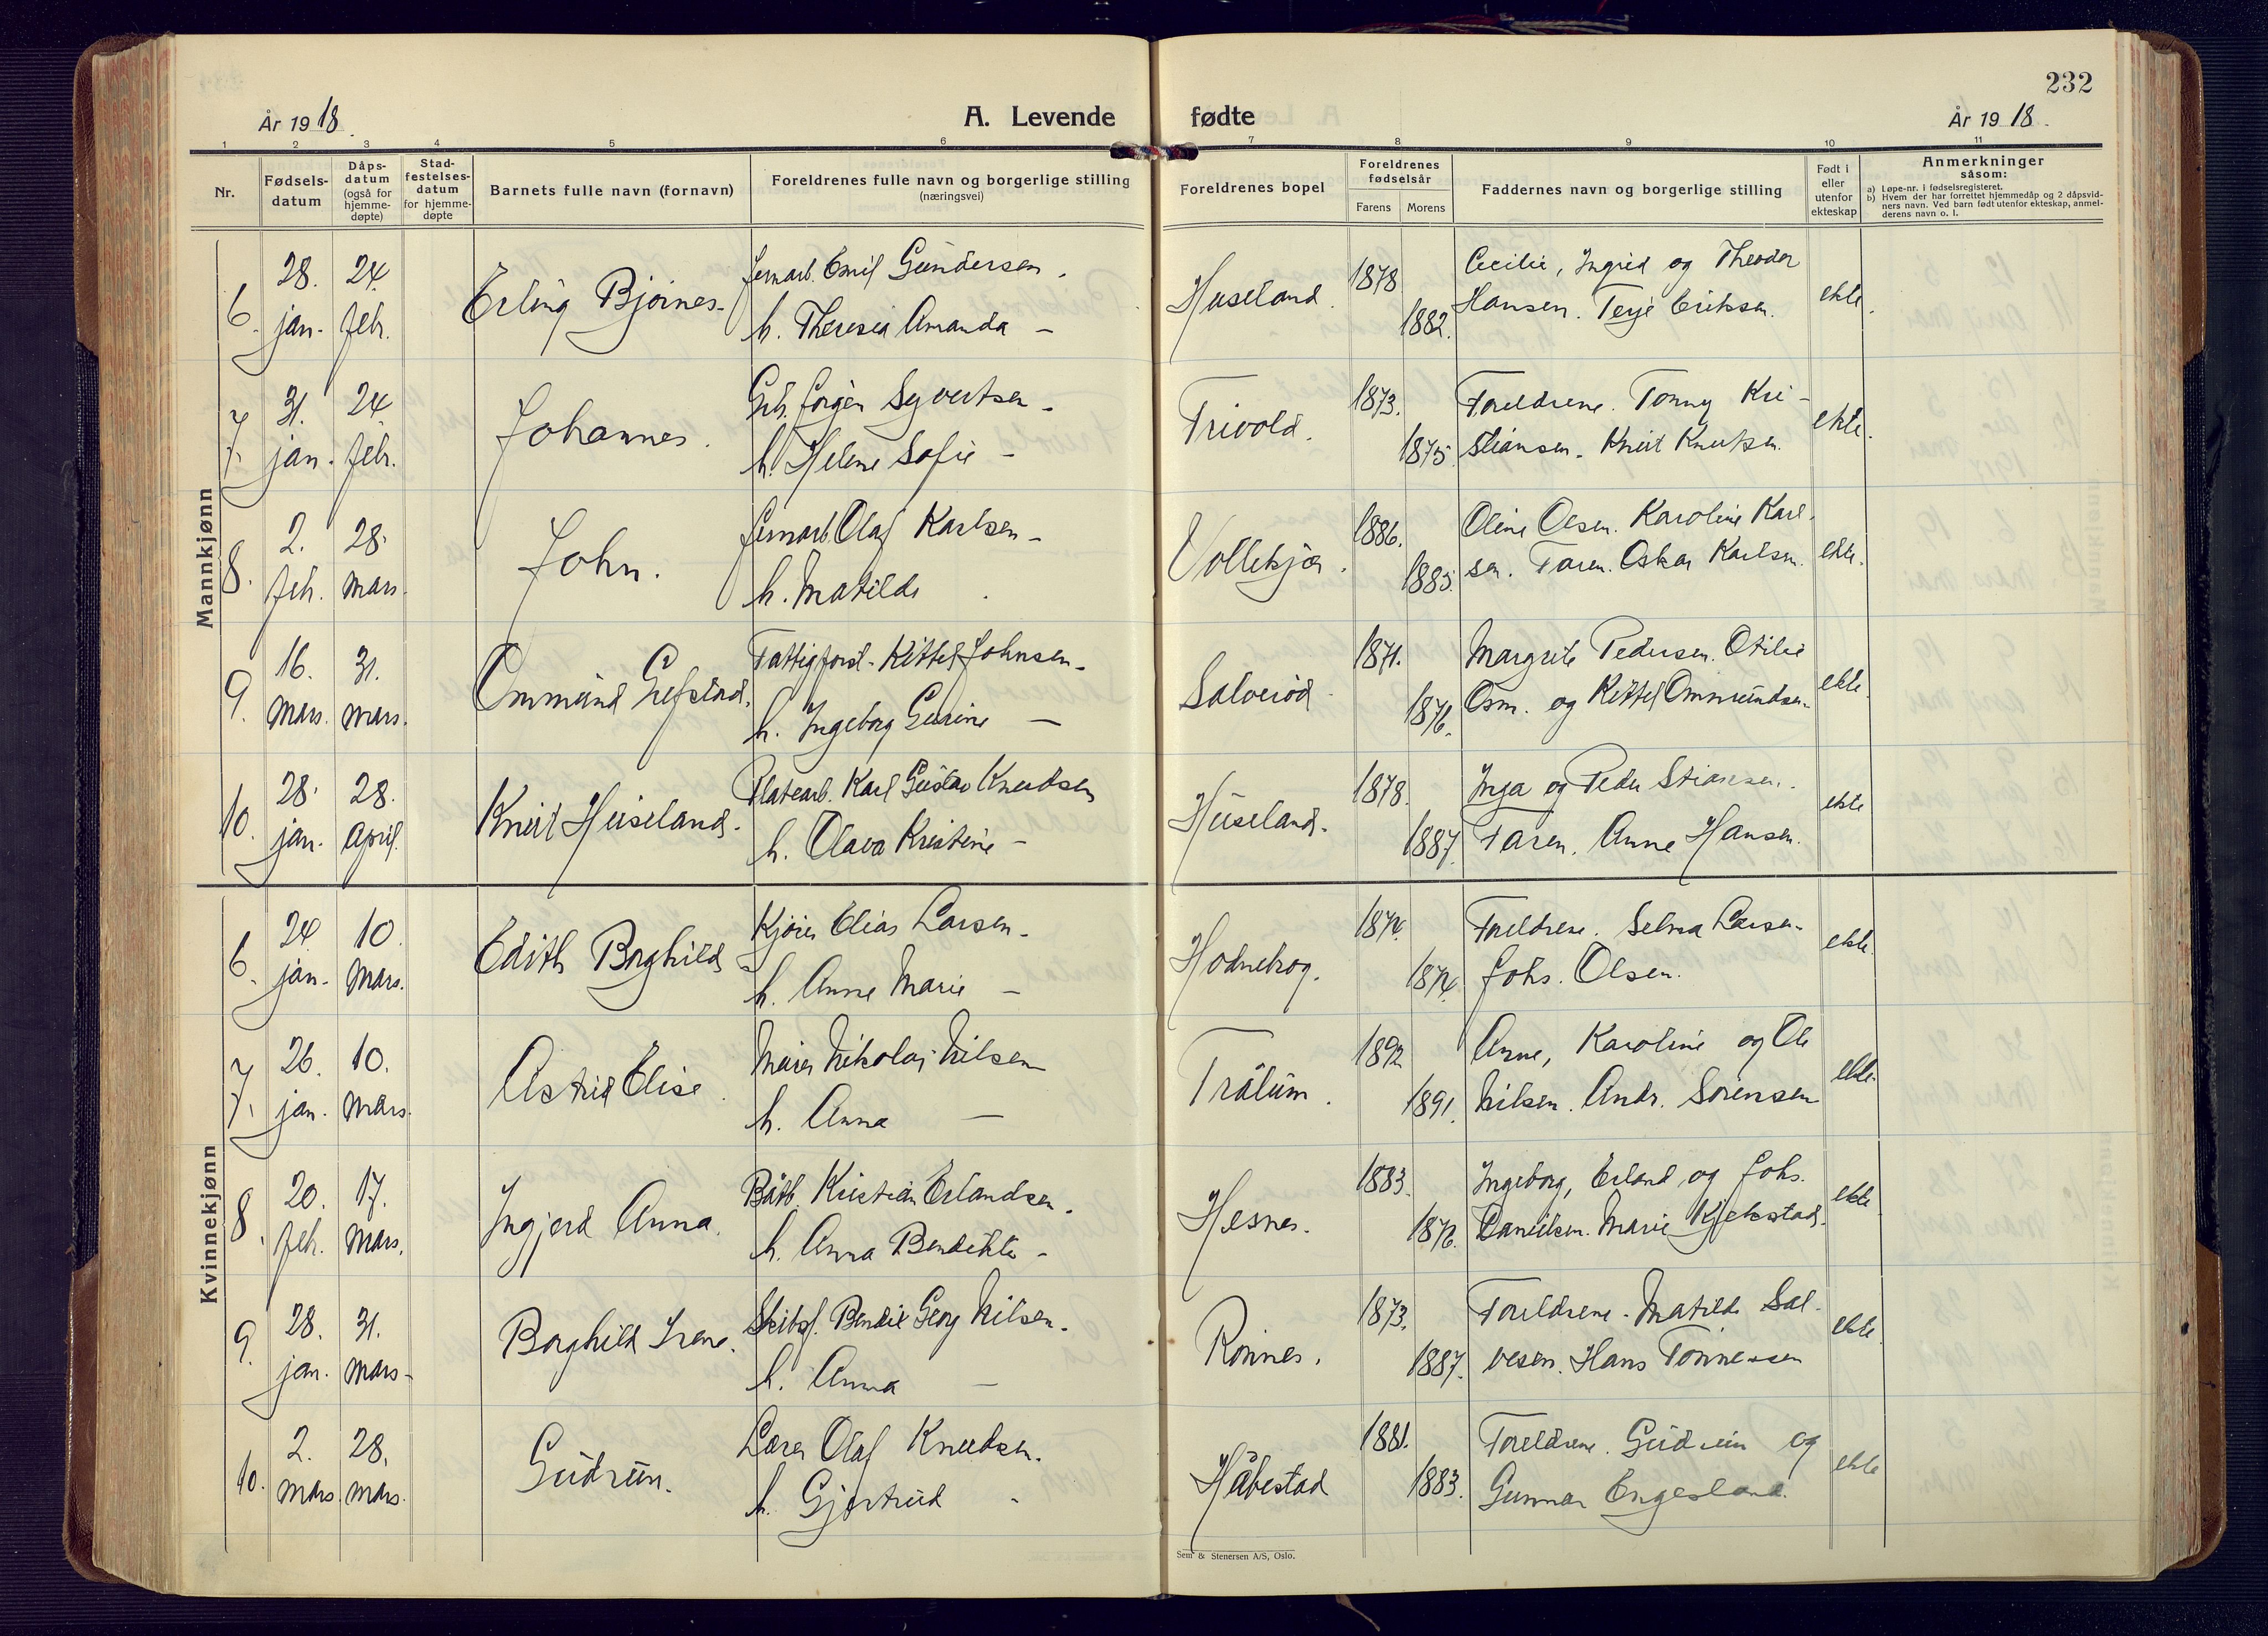 232
År 1918.
A. Levende fødte
År 1918.
1 2 3 4 5 6 7 8 9 10 11
Nr.
Fødsels-
datum
Dåps-
datum
(også for
hjemme-
døpte)
Stad-
festelses-
datum
for hjemme-
døpte
Barnets fulle navn (fornavn)
Foreldrenes fulle navn og borgerlige stilling
(næringsvei)
Foreldrenes bopel
Foreldrenes
fødselsår
Farens Morens
Faddernes navn og borgerlige stilling
Født i
eller
utenfor
ekteskap
Anmerkninger
såsom:
a) Løpe-nr. i fødselsregisteret.
b) Hvem der har forrettet hjemmedåp og 2 dåpsvid-
ners navn. Ved barn født utenfor ekteskap, anmel-
derens navn o. l.
Mannkjønn
6. 28. jan. 24. febr. Erling Bjørnes.
Jernarb. Emil Gundersen.
h. Theresia Amanda —
Huseland. 1878 1882.
Cecilie, Ingrid og Theodor
Hansen. Terje Eriksen.
ekte.
7. 31. jan. 24. febr. Johannes.
Grb. Jørgen Syvertsen -
h. Helene Sofie -
Trivold. 1873. 1875.
Foreldrene. Tonny Kri-
stiansen. Knut Knutsen.
ekte.
8. 2. feb. 28. mars. John.
Jernarb. Olaf Karlsen -
h. Matilde
Vollekjær. 1886. 1885.
Oline Olsen. Karoline Karl-
sen. Faren. Oskar Karlsen.
ekte.
9. 16. mars. 31. mars. Ommund Grefstad.
Fattigforst. Kittel Johnsen -
h. Ingeborg Gurine —
Salverød 1871. 1876.
Margrete Pedersen. Otilie
Osm. og Kittel Ommundsen.
ekte.
10. 28. jan. 28. april. Knut Huseland.
Platearb. Karl Gustav Knudsen
h. Olava Kristine -
Huseland. 1878. 1887.
Inga og Peder Stiansen.
Faren. Anne Hansen.
ekte
Kvinnekjønn
6. 24. jan. 10. mars. Edith Borghild
Kjører Elias Larsen -
h. Anne Marie —
Hodnebrog. 1874. 1874.
Foreldrene. Selma Larsen.
Johs. Olsen.
ekte.
7. 26. jan. 10. mars. Astrid Elise.
Murer Nikolai Nilsen
h. Anna —
Trålum. 1892 1891.
Anne, Karoline og Ole
Nilsen. Andr. Sørensen
ekte.
8. 20. feb. 17. mars. Ingjerd Anna.
Båtb. Kristian Erlandsen.
h. Anna Bendikte -
Hesnes. 1883. 1876.
Ingeborg, Erland og Johs.
Danielsen. Marie Kjekstad.
ekte
9. 28. jan. 31. mars. Borghild Irene.
Skibsf. Bendix Georg Nilsen.
h. Anna —
Rønnes. 1873. 1887.
Foreldrene. Matilde Sal-
vesen. Hans Tønnessen
ekte.
10. 2. mars. 28. mars. Gudrun.
Lærer Olaf Knudsen.
h. Gjertrud -
Håbestad 1881. 1883.
Foreldrene. Gudrun og
Gunnar Engesland.
ekte
Sem & Stenersen A/S, Oslo.